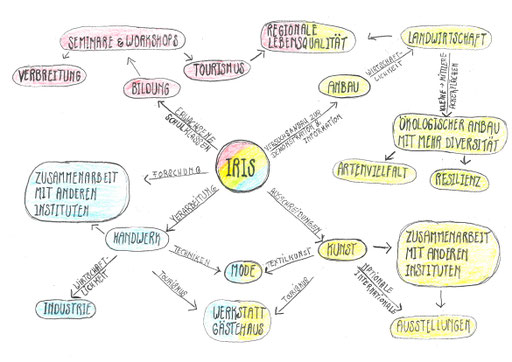 SEMINARE & WORKSHOPS
REGIONALE
LEBENSQUALITÄT
LANDWIRTSCHAFT
VERBREITUNG
TOURISMUS
BILDUNG
ANBAU
WIRTSCHAFT-
LICHKEIT
KLEINE + MITTLERE
ACKERFLÄCHEN
ERWACHSENE
SCHULKLASSEN
VERSUCHSANBAU ZUR
DEMONSTRATION &
INFORMATION
ÖKOLOGISCHER ANBAU
MIT MEHR DIVERSITÄT
ARTENVIELFALT
RESILIENZ
IRIS
FORSCHUNG
ZUSAMMENARBEIT
MIT ANDEREN
INSTITUTEN
VERARBEITUNG
HANDWERK
KUNST
ZUSAMMENARBEIT
MIT ANDEREN
INSTITUTEN
TECHNIKEN
MODE
TEXTILKUNST
WIRTSCHAFT-
LICHKEIT
TOURISMUS
TOURISMUS
NATIONALE
INTERNATIONALE
INDUSTRIE
WERKSTATT
GÄSTEHAUS
AUSSTELLUNGEN